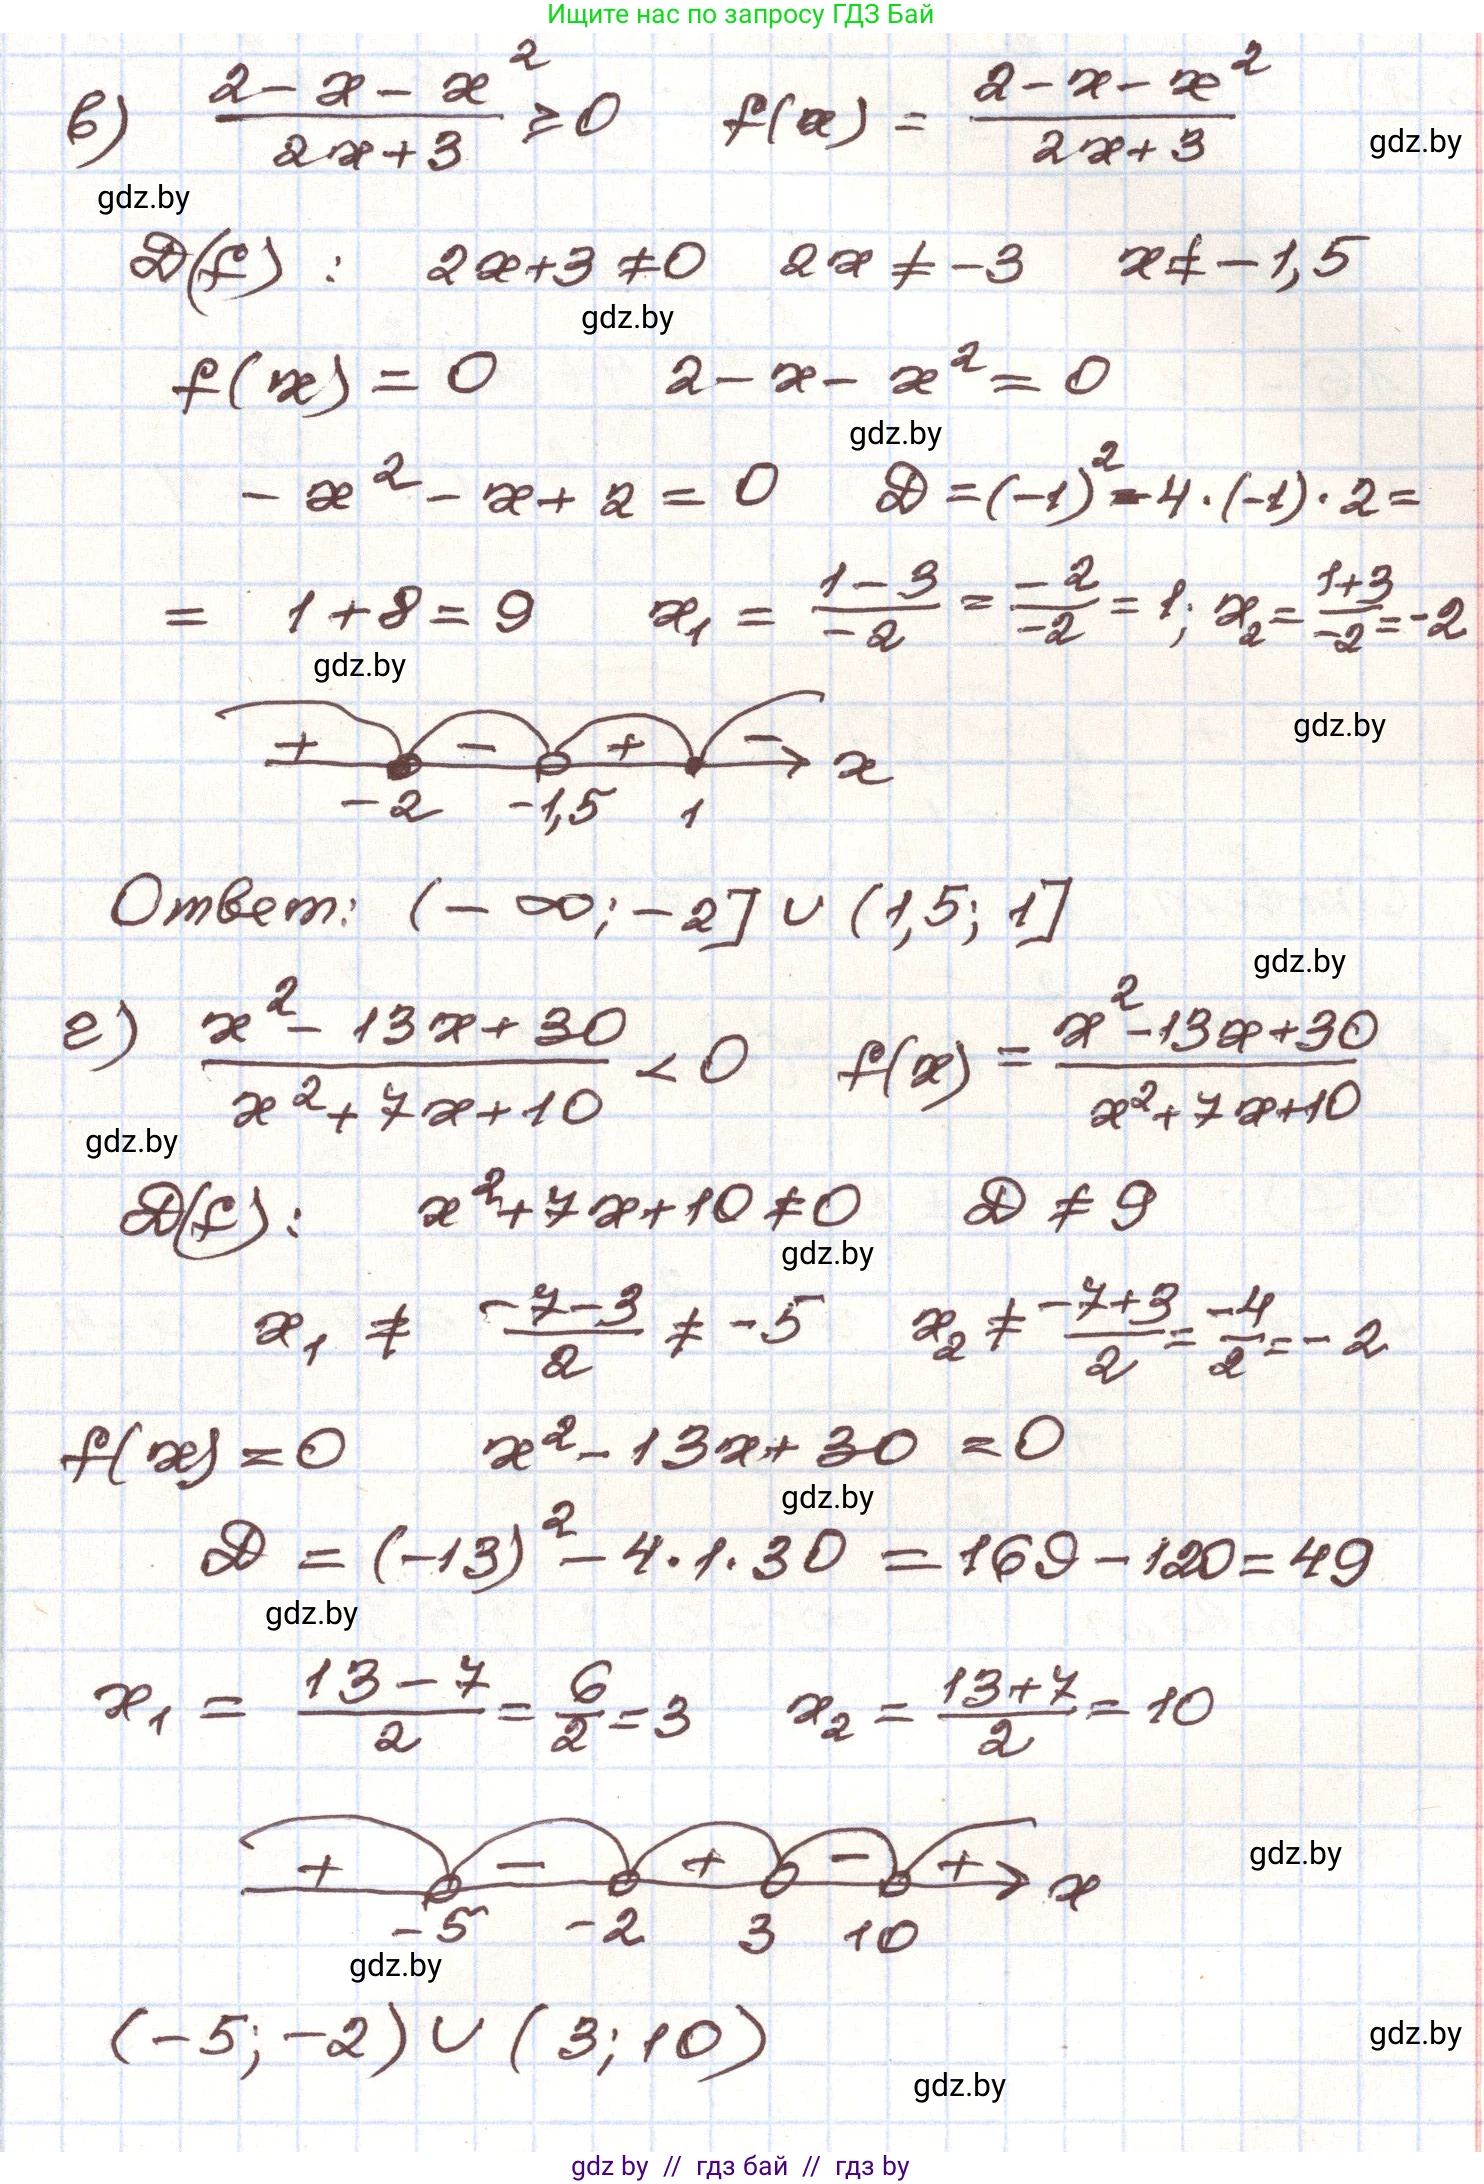 Ищите нас по запросу ГДЗ Бай
в) (2 - x - x²)/(2x + 3) ≥ 0 f(x) = (2 - x - x²)/(2x + 3)
gdz.by
gdz.by
D(f) : 2x + 3 ≠ 0 2x ≠ -3 x ≠ -1,5
gdz.by
f(x) = 0 2 - x - x² = 0
gdz.by
-x² - x + 2 = 0 D = (-1)² - 4·(-1)·2 =
= 1 + 8 = 9 x₁ = (1 - 3)/(-2) = (-2)/(-2) = 1; x₂ = (1+3)/(-2) = -2
gdz.by
gdz.by
+ - + - x
-2 -1,5 1
Ответ: (-∞; -2] ∪ (1,5; 1]
gdz.by
г) (x² - 13x + 30)/(x² + 7x + 10) < 0 f(x) = (x² - 13x + 30)/(x² + 7x + 10)
gdz.by
D(f) : x² + 7x + 10 ≠ 0 D ≠ 9
gdz.by
x₁ ≠ (-7 - 3)/2 ≠ -5 x₂ ≠ (-7 + 3)/2 = (-4)/2 = -2
f(x) = 0 x² - 13x + 30 = 0
gdz.by
D = (-13)² - 4·1·30 = 169 - 120 = 49
gdz.by
x₁ = (13 - 7)/2 = 6/2 = 3 x₂ = (13 + 7)/2 = 10
gdz.by
+ - + - + x
-5 -2 3 10
gdz.by
(-5; -2) ∪ (3; 10)
gdz.by
gdz.by
gdz by // гдз бай // гдз by